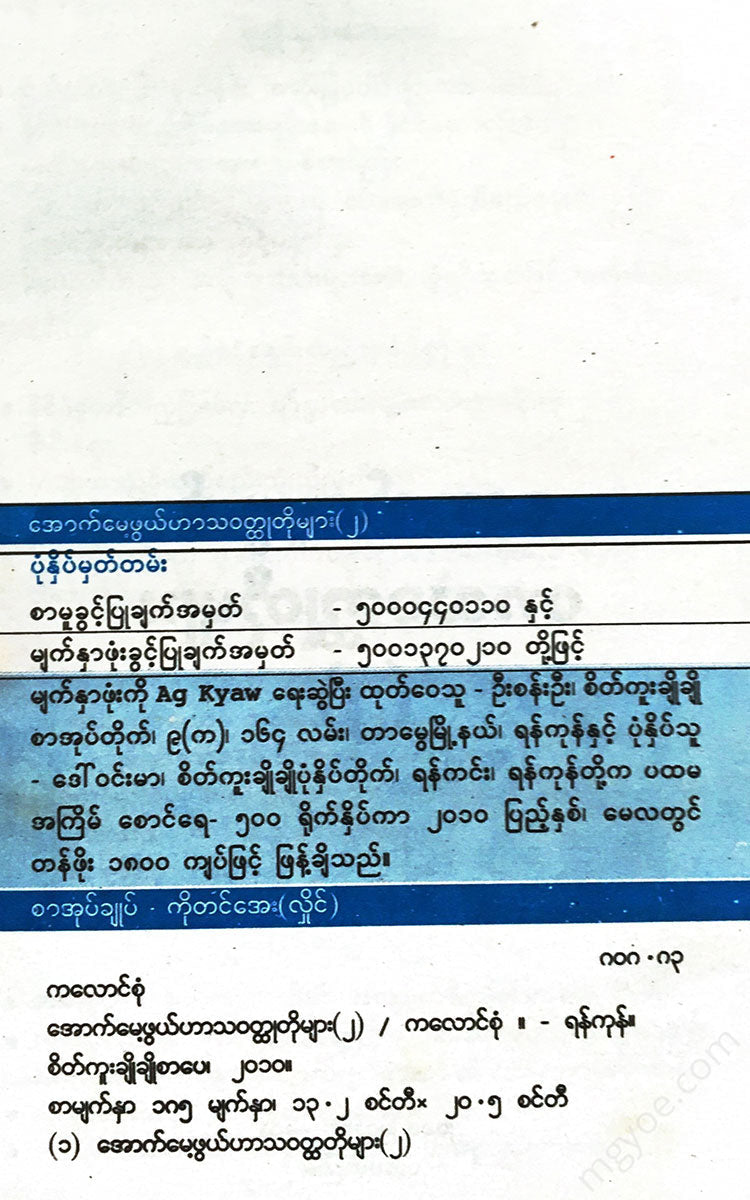 အောက်မေ့ဖွယ်ဟာသဝတ္ထုတိုများ(၂)
ပုံနှိပ်မှတ်တမ်း
စာမူခွင့်ပြုချက်အမှတ် - ၅၀၀၀၄၄၀၁၁၀ နှင့်
မျက်နှာဖုံးခွင့်ပြုချက်အမှတ် - ၅၀၀၁၃၇၀၂၁၀ တို့ဖြင့်
မျက်နှာဖုံးကို Ag Kyaw ရေးဆွဲပြီး ထုတ်ဝေသူ - ဦးစန်းဦး၊ စိတ်ကူးချိုချို
စာအုပ်တိုက်၊ ၉(က)၊ ၁၆၄ လမ်း၊ တာမွေမြို့နယ်၊ ရန်ကုန်နှင့် ပုံနှိပ်သူ
- ဒေါ်ဝင်းမာ၊ စိတ်ကူးချိုချိုပုံနှိပ်တိုက်၊ ရန်ကင်း၊ ရန်ကုန်တို့က ပထမ
အကြိမ် စောင်ရေ- ၅၀၀ ရိုက်နှိပ်ကာ ၂၀၁၀ ပြည့်နှစ်၊ မေလတွင်
တန်ဖိုး ၁၈၀၀ ကျပ်ဖြင့် ဖြန့်ချိသည်။
စာအုပ်ချုပ် - ကိုတင်အေး(လှိုင်)
၈၀၈ ・၈၃
ကလောင်စုံ
အောက်မေ့ဖွယ်ဟာသဝတ္ထုတိုများ(၂) / ကလောင်စုံ ။ - ရန်ကုန်။
စိတ်ကူးချိုချိုစာပေ၊ ၂၀၁၀။
စာမျက်နှာ ၁၈၅ မျက်နှာ၊ ၁၃・၂ စင်တီ× ၂၀・၅ စင်တီ
(၁) အောက်မေ့ဖွယ်ဟာသဝတ္ထတိုများ(၂)
mgyoe.com